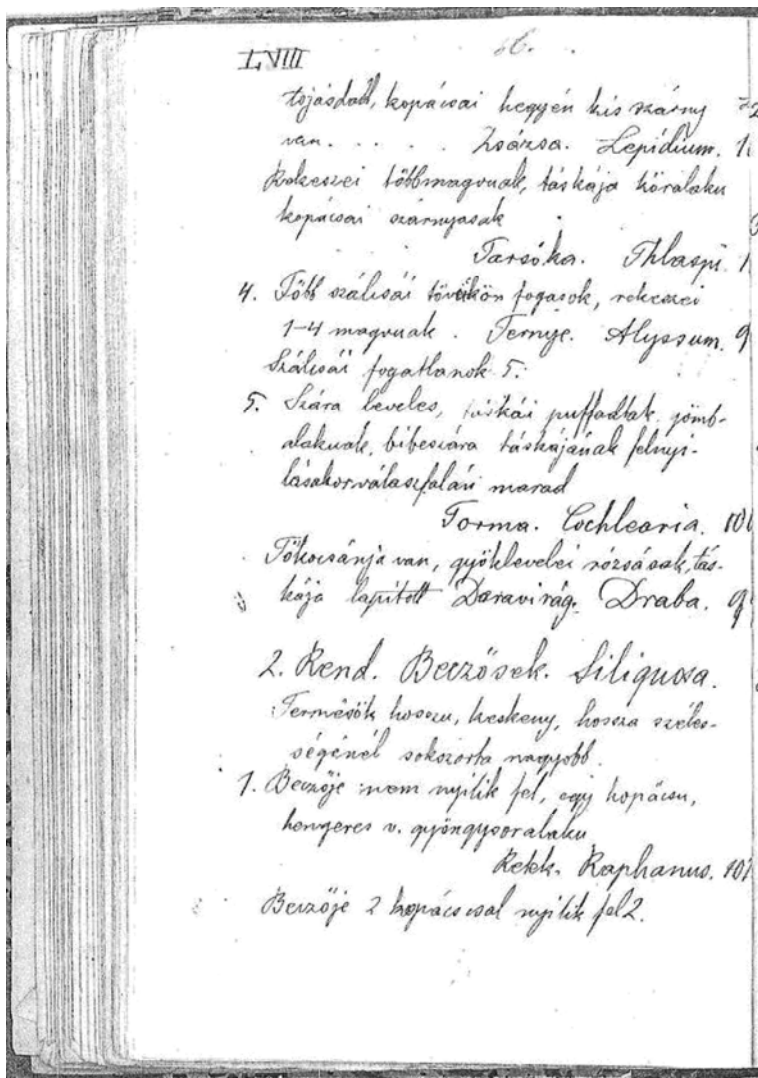 LVIII
56.
tojásdad, kopácsai hegyén kis szárny
van. . . . . Zsázsa. Lepidium. 1
Rekeszei többmagvuak, táskája köralaku
kopácsai szárnyasak
Tarsóka. Thlaspi. 1
4. Több szálcsái tövükön fogasok, rekeszei
1-4 magvuak. Ternye. Alyssum. 9
Szálcsái fogatlanok 5.
5. Szára leveles, táskái puffadtak gömb-
alakuak, bibeszára táskájának felnyi-
lásakor válaszfalán marad
Torma. Cochlearia. 10
Tőkocsánja van, gyöklevelei rózsásak, tás-
kája lapított Daravirág. Draba. 9
2. Rend. Beczősek. Siliquosa.
Termésök hosszu, keskeny, hossza széles-
ségénél sokszorta nagyobb.
1. Beczője nem nyilik fel, egy kopácsu,
hengeres v. gyöngysoralaku
Retek. Raphanus. 101
Beczője 2 kopácscsal nyilik fel 2.